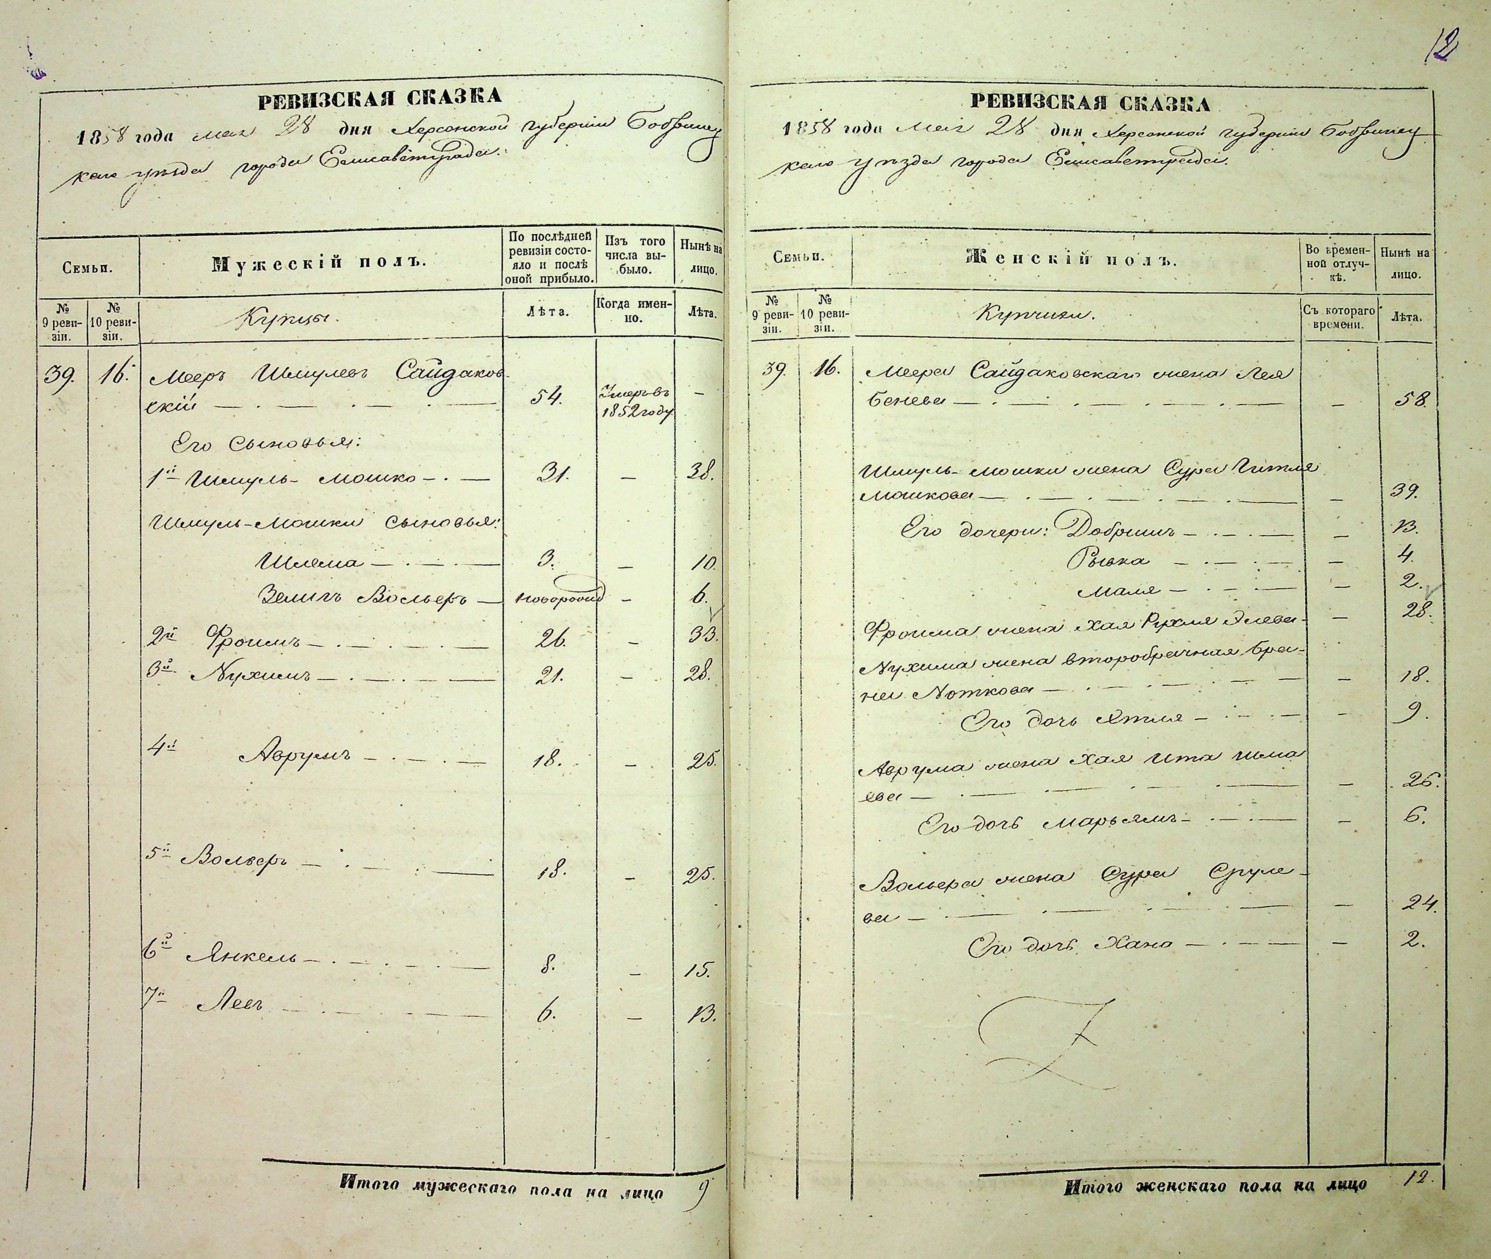 12
РЕВИЗСКАЯ СКАЗКА
1858 года мая 28 дня Херсонской губернии Бобринец
каго уѣзда города Елисаветграда.
Семьи.
Мужескій полъ.
По послѣдней ревизіи состояло и послѣ оной прибыло.
Изъ того числа выбыло.
Нынѣ на лицо.
№ 9 ревизіи.
№ 10 ревизіи.
Купцы.
Лѣта.
Когда именно.
Лѣта.
39. 16. Мееръ Шмулевъ Сайдаков-
скій — 54. Умеръ въ 1852 году —
Его сыновья:
1й Шмуль-Мошко — 31. — 38.
Шмуль-Мошки сыновья:
Шлема — 3. — 10.
Зелигъ Вольфъ — новорожд — 6.
2й Фроимъ — 26. — 33.
3й Нухимъ — 21. — 28.
4й Аврумъ — 18. — 25.
5й Вольфъ — 18. — 25.
6й Янкель — 8. — 15.
7й Лейъ — 6. — 13.
Итого мужескаго пола на лицо 9
РЕВИЗСКАЯ СКАЗКА
1858 года мая 28 дня Херсонской губернии Бобринец
каго уѣзда города Елисаветграда.
Семьи.
Женскій полъ.
Во временной отлучкѣ.
Нынѣ на лицо.
№ 9 ревизіи.
№ 10 ревизіи.
Купчихи.
Съ котораго времени.
Лѣта.
39. 16. Меера Сайдаковскаго жена Лея
Бенева — — 58.
Шмуль-Мошки жена Сура Гитля
Мошкова — — 39.
Его дочери: Добришъ — — 13.
Рывка — — 4.
Маля — — 2.
Фроима жена Хая Рухля Элева — 28.
Нухима жена второбрачная Бра-
на Ноткова — — 18.
Его дочь Ятля — — 9.
Аврума жена Хая Ита Шма
ева — — 26.
Его дочь Марьямъ — — 6.
Вольфа жена Сура Сруле-
ва — — 24.
Его дочь Хана — — 2.
Итого женскаго пола на лицо 12.